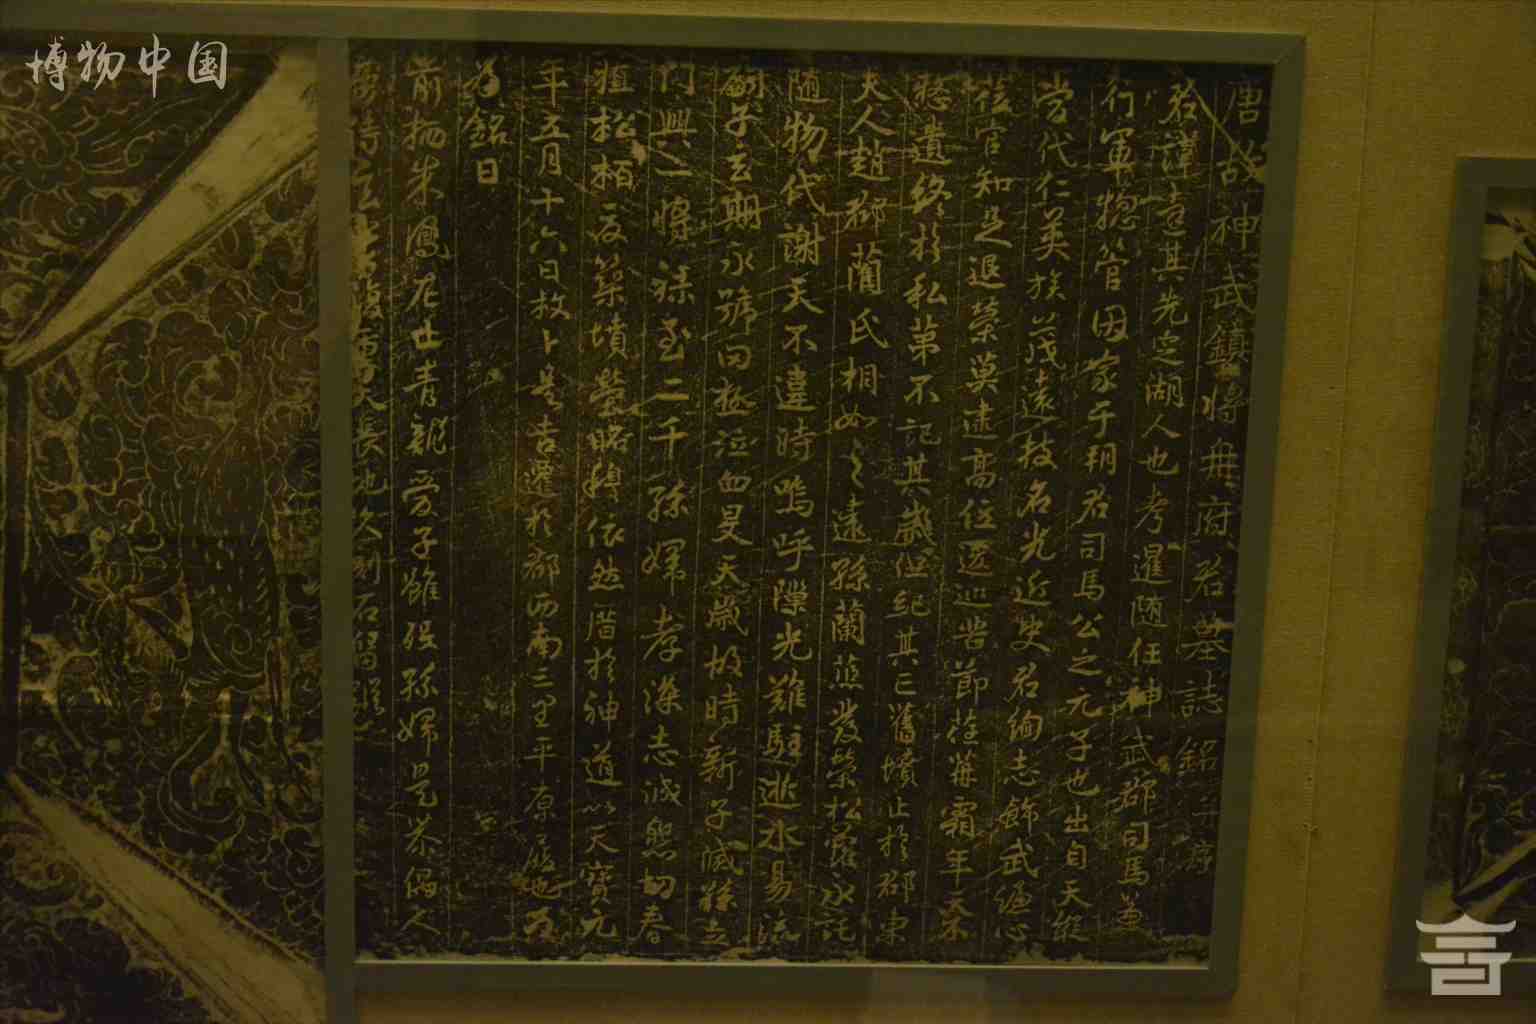 博物中国
唐故神武鎮將毌府君墓誌銘并序
君諱其先定湖人也考暹隨任神武郡司馬兼
行軍惣管因家于朔君司馬公之元子也出自天縱
當代仁美族茂遠枝名光近史君絢志飾武德心
從官知足退榮莫逮高位還巡皆節年天不
憖遺終於私第不記其歲但紀其已舊墳止於郡東
夫人趙郡藺氏相如之遠孫蘭蕙發榮松蘿永託
隨物代謝天不違時嗚呼隙光難駐逝水易流
嗣子玄期永号田極泣血旻天歲故時新子滅孫立
門興二孫至二千孫婦孝深志誠懇切春
植松栢夏築墳塋路轉依然厝於神道以天寶九
年五月十六日故卜是吉遷於郡西南三里平原禮也乃
為銘曰
前揚朱鳳左仕青龍愛子雖歿孫婦是恭偶人
天長地久刻石留